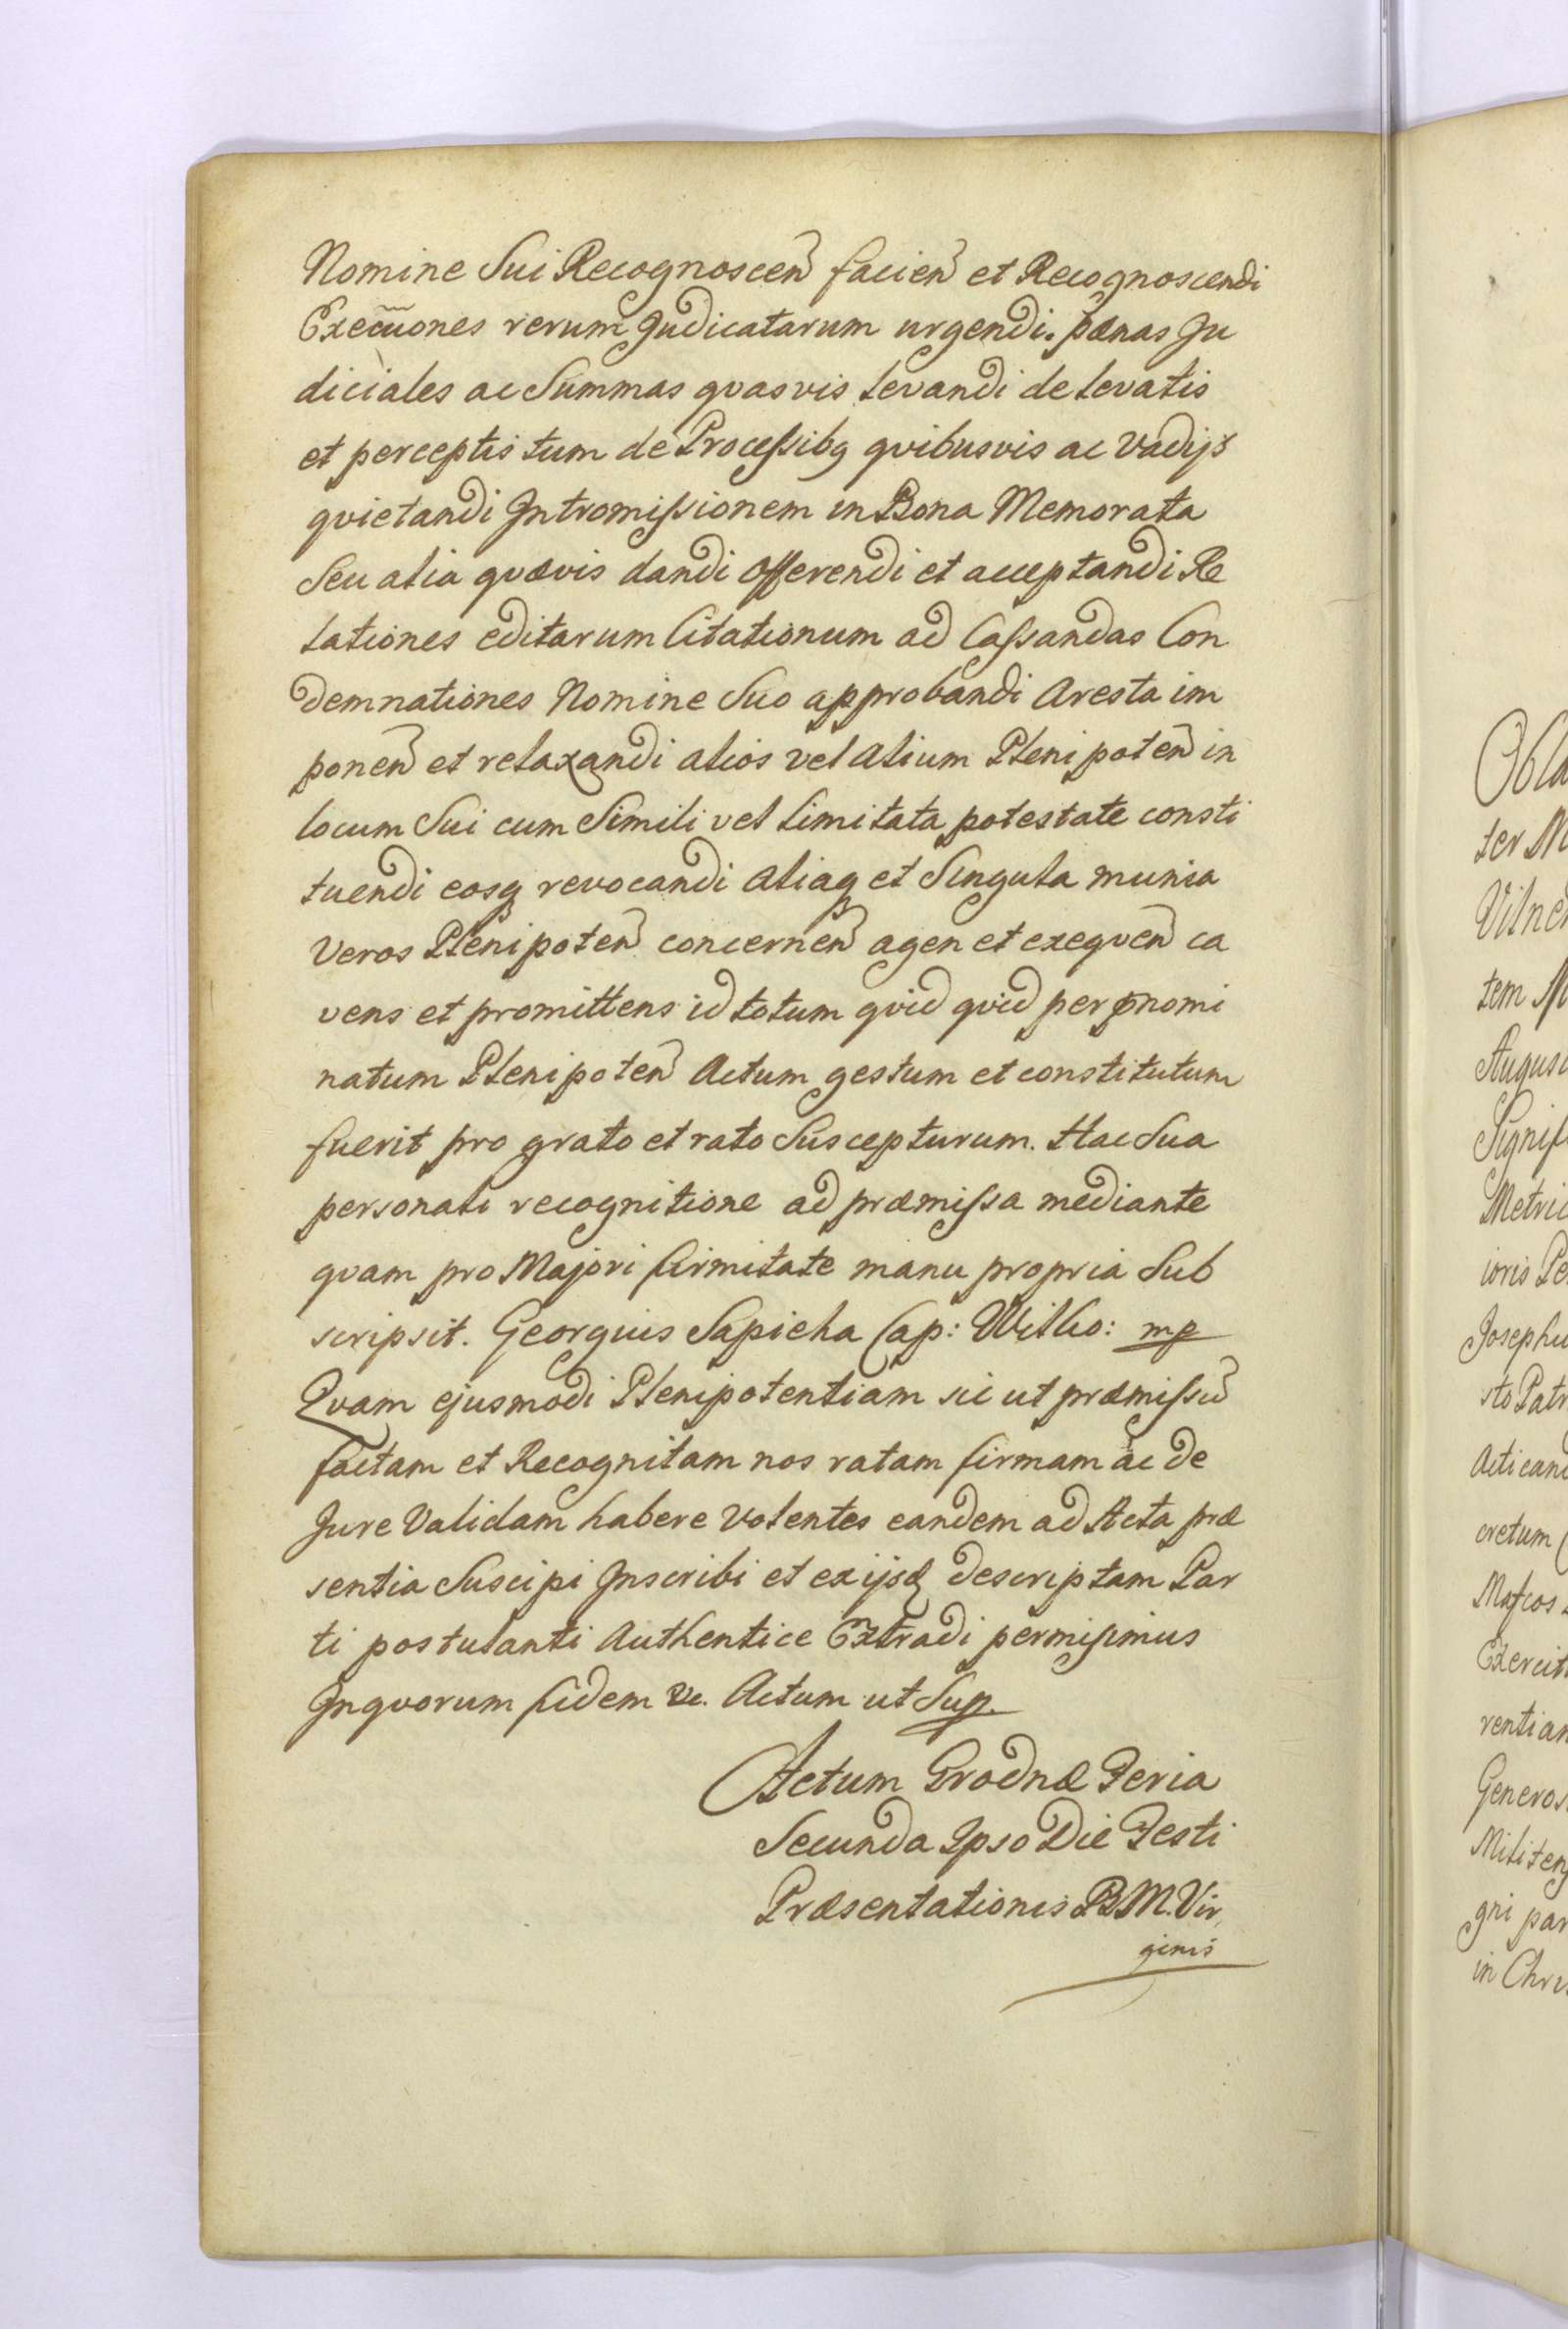 Nomine Sui Recognoscen̄ facien̄ et Recognoscendi
Execũones rerum Judicatarum urgendi. pœnas Ju
diciales ac Summas qvasvis levandi de levatis
et perceptis tum de Processibq qvibusvis ac Vadijs
qvietandi Intromissionem in Bona Memorata
Seu alia qvævis dandi offerendi et acceptandi Re
lationes editarum Citationum ad Cassandas Con
demnationes Nomine Suo approbandi Aresta im
ponen̄ et relaxandi alios vel alium Plenipoten̄ in
locum Sui cum Simili vel limitata potestate consti
tuendi eosq revocandi aliaq et Singula munia
Veros Plenipoten̄ concernen̄ agen et exeqven̄ ca
vens et promittens id totum qvid qvid per p̄nomi
natum Plenipoten̄ Actum gestum et constitutum
fuerit pro grato et rato Suscepturum. Hac Sua
personali recognitione ad præmissa mediante
qvam pro Majori firmitate manu propria Sub
scripsit. Georgius Sapieha Cap: Wilko: mp
Qvam ejusmodi Plenipotentiam sic ut præmissũ
factam et Recognitam nos ratam firmam ac de
Jure Validam habere Volentes eandem ad Acta præ
sentia Suscipi Inscribi et ex ijsq descriptam Par
ti postulanti Authentice Extradi permisimus
Inqvorum fidem &c. Actum ut Sup.
Actum Grodnæ Feria
Secunda Ipso Die Festi
Præsentationis B M. Vir,
ginis
Obla
ter
Vilne
tem
Augus
Signif
Metric
ioris Pe
Josephu
sto Patr
Acticand
cretum
Exercit
rentiam
Generos
Militeng
gni par
in Chri